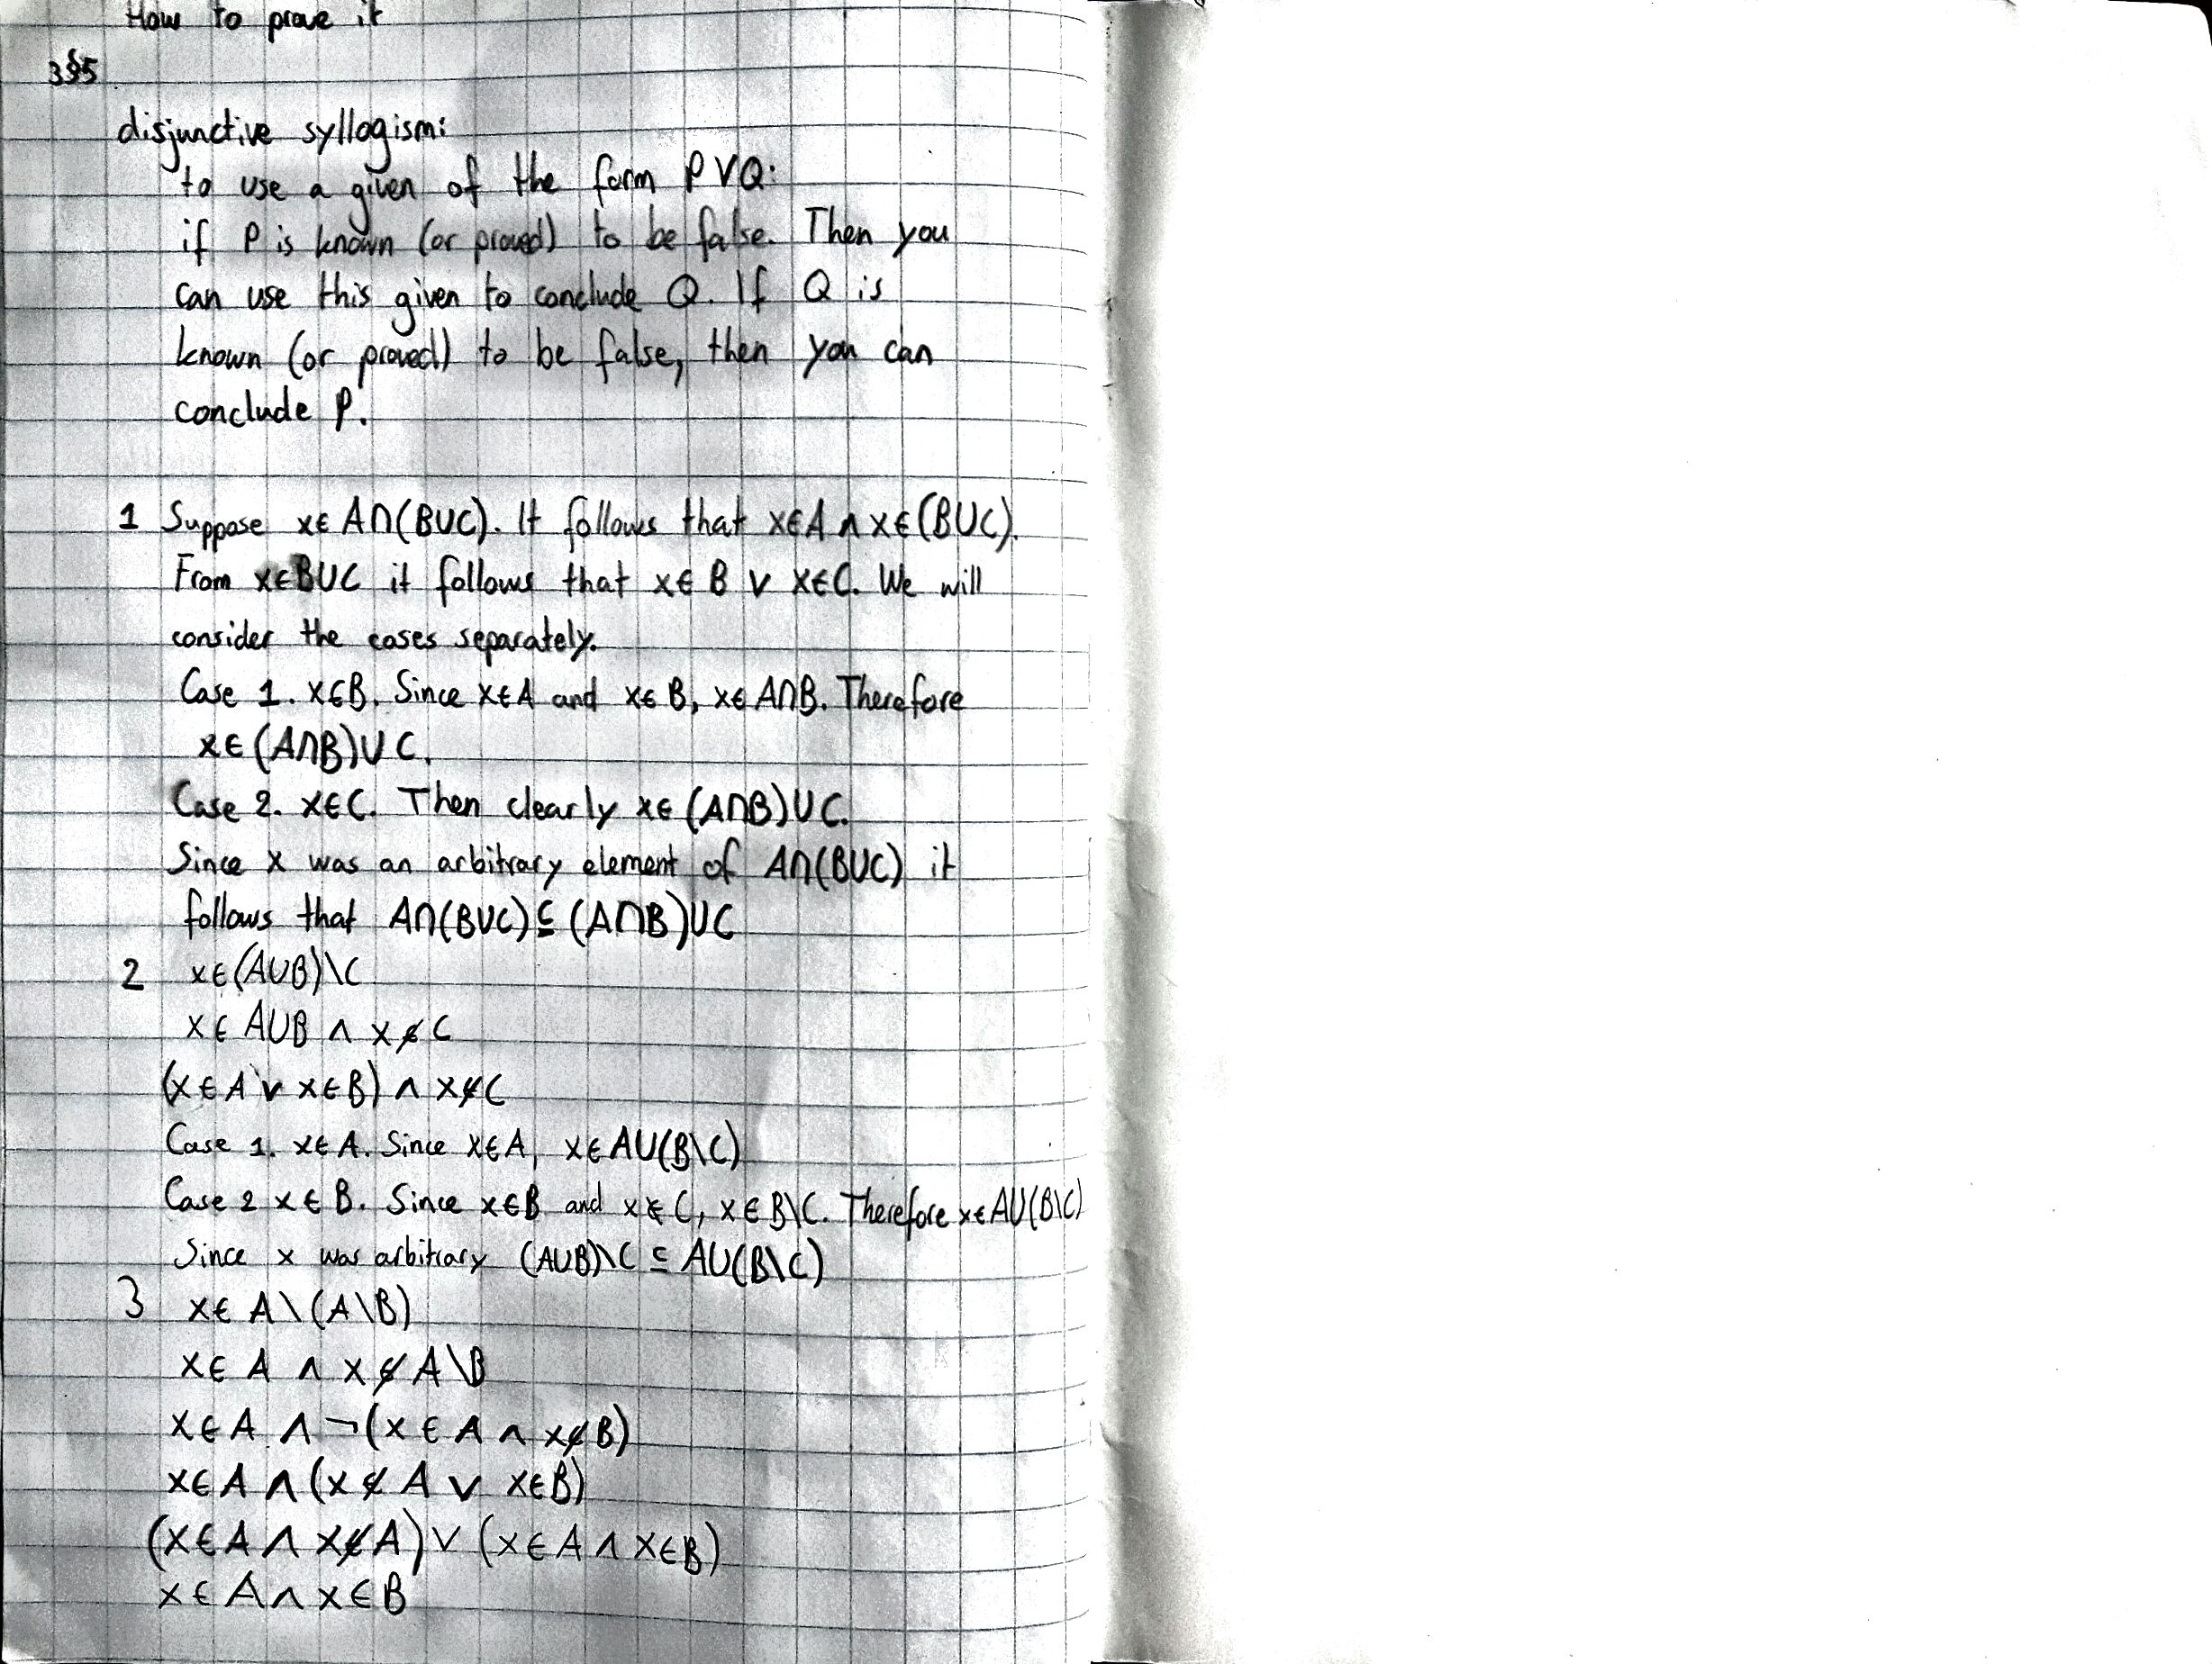 How to prove it
3§5
disjunctive syllogism:
to use a given of the form P∨Q:
if P is known (or proved) to be false. Then you
can use this given to conclude Q. If Q is
known (or proved) to be false, then you can
conclude P.
1 Suppose x∈A∩(B∪C). It follows that x∈A ∧ x∈(B∪C).
From x∈B∪C it follows that x∈B ∨ x∈C. We will
consider the cases separately.
Case 1. x∈B. Since x∈A and x∈B, x∈A∩B. Therefore
x∈(A∩B)∪C.
Case 2. x∈C. Then clearly x∈(A∩B)∪C.
Since x was an arbitrary element of A∩(B∪C) it
follows that A∩(B∪C)⊆(A∩B)∪C
2 x∈(A∪B)\C
x∈A∪B ∧ x∉C
(x∈A ∨ x∈B) ∧ x∉C
Case 1. x∈A. Since x∈A, x∈A∪(B\C)
Case 2 x∈B. Since x∈B and x∉C, x∈B\C. Therefore x∈A∪(B\C)
Since x was arbitrary (A∪B)\C ⊆ A∪(B\C)
3 x∈A\(A\B)
x∈A ∧ x∉A\B
x∈A ∧ ¬(x∈A ∧ x∉B)
x∈A ∧ (x∉A ∨ x∈B)
(x∈A ∧ x∉A) ∨ (x∈A ∧ x∈B)
x∈A ∧ x∈B